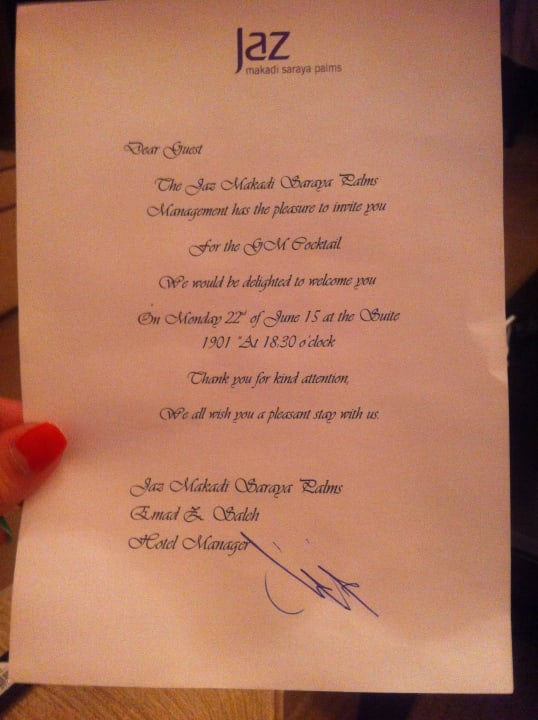 Jaz
makadi saraya palms
Dear Guest
The Jaz Makadi Saraya Palms
Management has the pleasure to invite you
For the GM Cocktail
We would be delighted to welcome you
On Monday 22nd of June 15 at the Suite
1901 "At 18.30 o'clock
Thank you for kind attention,
We all wish you a pleasant stay with us.
Jaz Makadi Saraya Palms
Emad Z. Saleh
Hotel Manager